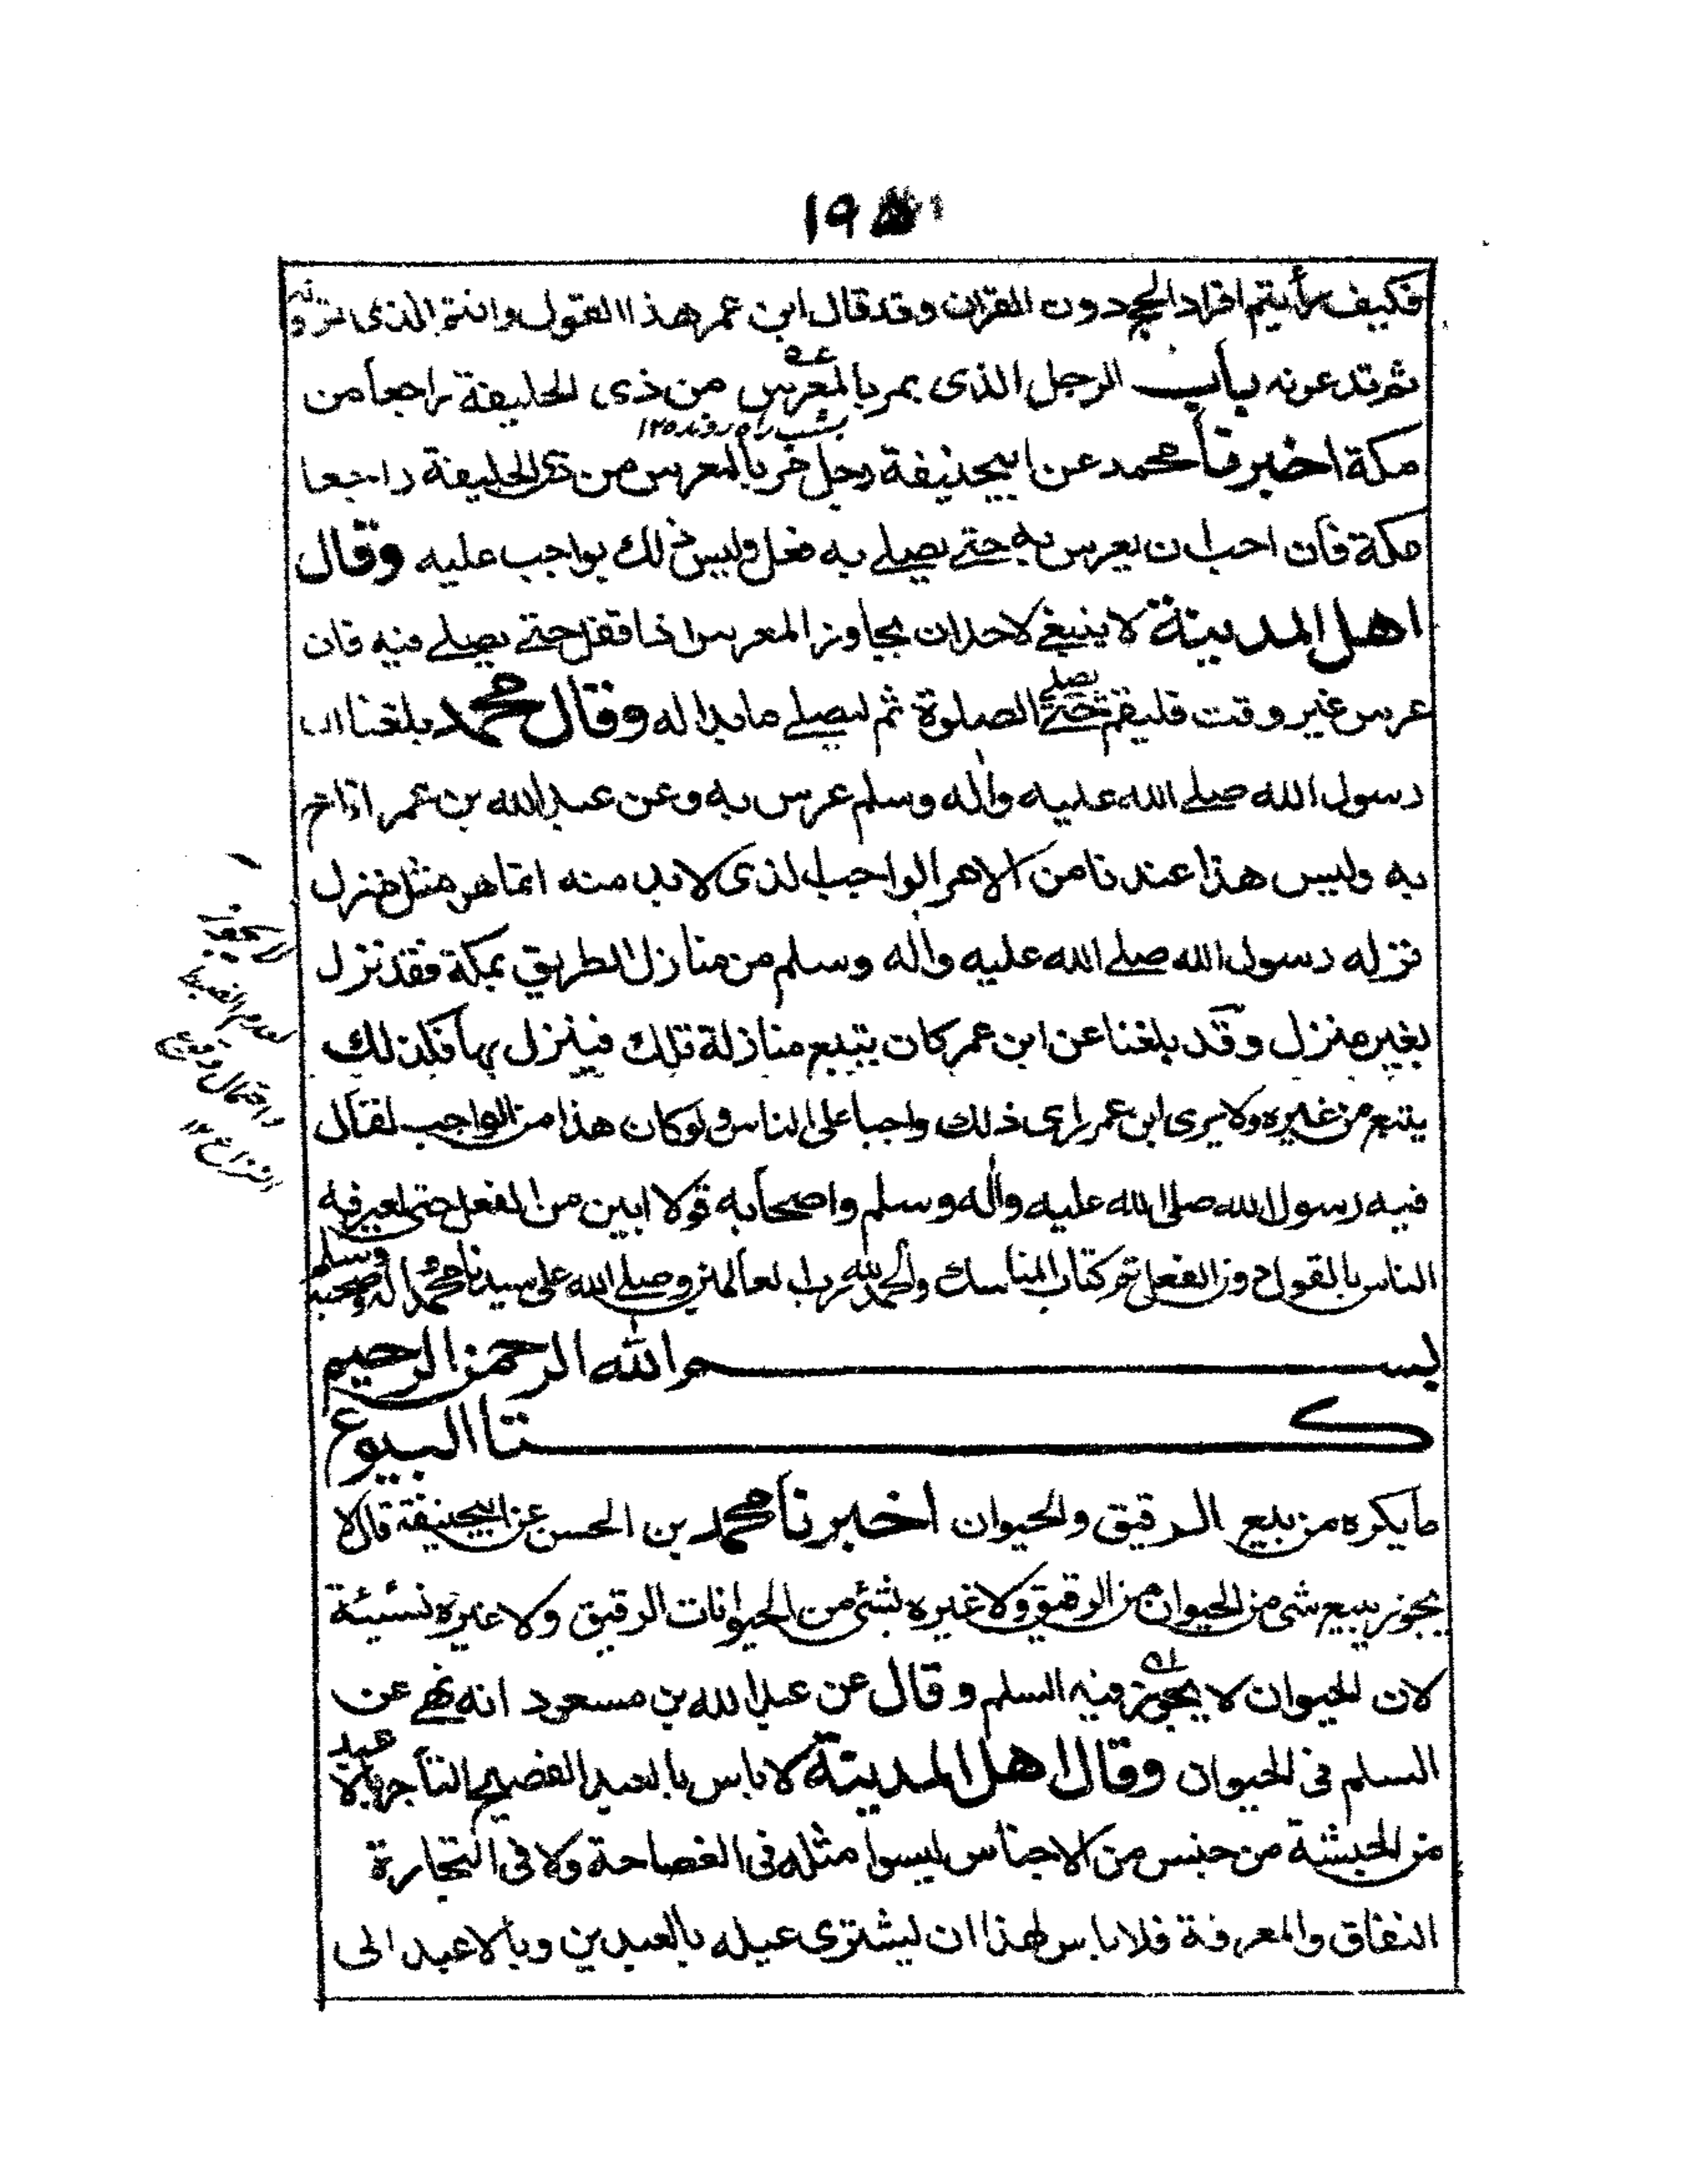 فكيف رأيتم افراد الحج دون القران وقد قال ابن عمر هذا القول وانتم الذى تروونه
ثم تدعونه باب الرجل الذى يمر بالمعرس من ذى الحليفة راجعا من
مكة اخبرنا محمد عن ابيحنيفة رجل مر بالمعرس من ذى الحليفة راجعا
مكة فان احب ان يعرس به حتے يصلے به فعل وليس ذلك بواجب عليه وقال
اهل المدينة لا ينبغے لاحد ان يجاوز المعرس اذا قفل حتے يصلے فيه فان
عرس غير وقت فليقم حتے الصلوة ثم ليصلے ما بدا له وقال محمد بلغنا ان
رسول الله صلے الله عليه واله وسلم عرس به وعن عبد الله بن عمر اناخ
به وليس هذا عندنا من الامر الواجب الذى لا بد منه انما هو مثل منزل
نزله رسول الله صلے الله عليه واله وسلم من منازل الطريق بمكة فقد نزل
بغير منزل وقد بلغنا عن ابن عمر كان يتبع منازلة تلك فينزل بها فكذلك
يتبع من غيره ولا يرى ابن عمر راى ذلك واجبا على الناس ولو كان هذا من الواجب لقال
فيه رسول الله صلى الله عليه واله وسلم واصحابه قولا ابين من الفعل حتى لعير فيه
الناس بالقول دون الفعل تم كتاب المناسك والحمد لله رب العالمين وصلے الله على سيدنا محمد اله وصحبه وسلم
بسم الله الرحمن الرحيم
كتا البيوع
ما يكره من بيع الرقيق والحيوان اخبرنا محمد بن الحسن عن ابيحنيفة قال لا
يجوز بيع شى من الحيوان من الرقيق ولا غيره بشئ من الحيوانات الرقيق ولا غيره نسيئة
لان الحيوان لا يجوز فيه السلم وقال عن عبد الله بن مسعود انه نهے عن
السلم فى الحيوان وقال اهل المدينة لا باس بالعبد الفصيح التاجر بالاعبد
من الحبشة من جنس من الاجناس ليسوا مثله فى الفصاحة ولا فى التجارة
النفاق والمعرفة فلا باس لهذا ان ليشترى عبده بالعبدين وبالاعبد الى